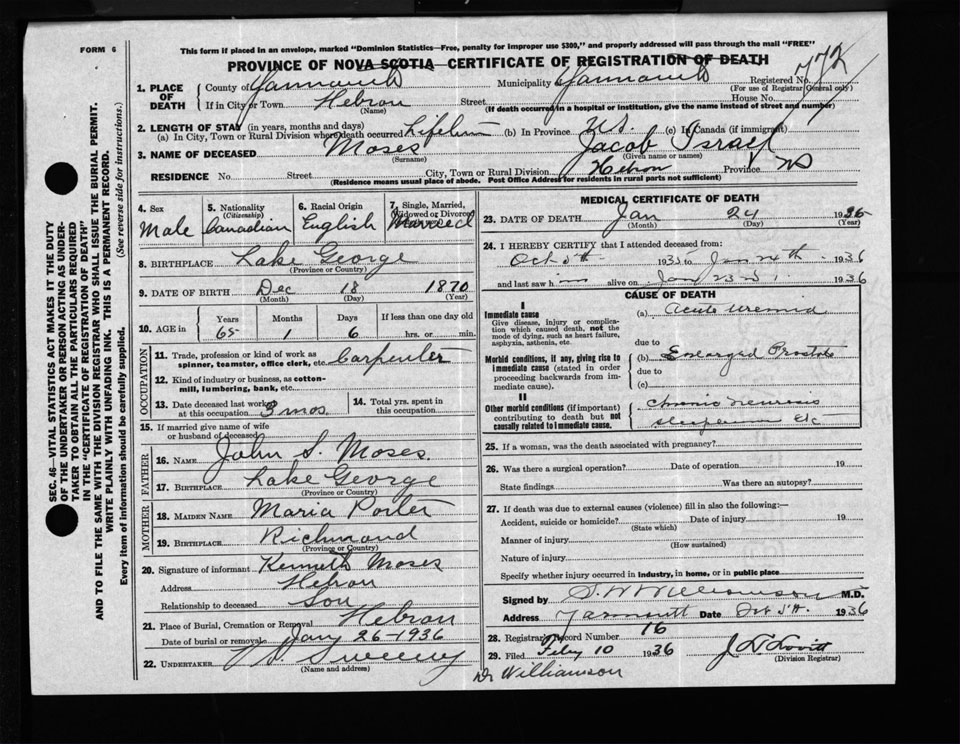 FORM 6
This form if placed in an envelope, marked "Dominion Statistics—Free, penalty for improper use $300," and properly addressed will pass through the mail "FREE"
PROVINCE OF NOVA SCOTIA CERTIFICATE OF REGISTRATION OF DEATH
772
1. PLACE OF DEATH
County of Yarmouth Municipality of Yarmouth Registered No.
(For use of Registrar General only)
If in City or Town Hebron Street House No.
(Name) (If death occurred in a hospital or institution, give the name instead of street and number)
2. LENGTH OF STAY (in years, months and days)
(a) In City, Town or Rural Division where death occurred Lifetime (b) In Province (c) In Canada (if immigrant)
3. NAME OF DECEASED Moses Jacob Israel
(Surname) (Given name or names)
RESIDENCE No. Street City, Town or Rural Division Hebron Province NS
(Residence means usual place of abode. Post Office Address for residents in rural parts not sufficient)
SEC. 46—VITAL STATISTICS ACT MAKES IT THE DUTY
OF THE UNDERTAKER OR PERSON ACTING AS UNDER-
TAKER TO OBTAIN ALL THE PARTICULARS REQUIRED
IN THE "CERTIFICATE OF REGISTRATION OF DEATH"
AND TO FILE THE SAME WITH THE DIVISION REGISTRAR WHO SHALL ISSUE THE BURIAL PERMIT.
WRITE PLAINLY WITH UNFADING INK. THIS IS A PERMANENT RECORD.
Every item of information should be carefully supplied. (See reverse side for instructions.)
4. Sex
Male
5. Nationality
(Citizenship)
Canadian
6. Racial Origin
English
7. Single, Married,
Widowed or Divorced
Married
8. BIRTHPLACE Lake George
(Province or Country)
9. DATE OF BIRTH Dec 18 1870
(Month) (Day) (Year)
10. AGE in
Years Months Days If less than one day old
65 1 6 hrs. or min.
OCCUPATION
11. Trade, profession or kind of work as
spinner, teamster, office clerk, etc. Carpenter
12. Kind of industry or business, as cotton-
mill, lumbering, bank, etc.
13. Date deceased last worked
at this occupation 3 mos.
14. Total yrs. spent in
this occupation
15. If married give name of wife
or husband of deceased
FATHER
16. NAME John S. Moses
17. BIRTHPLACE Lake George
(Province or Country)
MOTHER
18. MAIDEN NAME Maria Porter
19. BIRTHPLACE Richmond
(Province or Country)
20. Signature of informant Kenneth Moses
Address Hebron
Relationship to deceased Son
21. Place of Burial, Cremation or Removal Hebron
Date of burial or removal Jany 26-1936
22. UNDERTAKER Sweeny
(Name and address)
MEDICAL CERTIFICATE OF DEATH
23. DATE OF DEATH Jan 24 1936
(Month) (Day) (Year)
24. I HEREBY CERTIFY that I attended deceased from:
Oct 5th 1935 to Jan 24th 1936
and last saw him alive on Jan 23rd 1936
CAUSE OF DEATH
I
Immediate cause
Give disease, injury or complica-
tion which caused death, not the
mode of dying, such as heart failure,
asphyxia, asthenia, etc.
(a) Acute Uremia
due to
Morbid conditions, if any, giving rise to
immediate cause (stated in order
proceeding backwards from im-
mediate cause).
(b) Enlarged Prostate
due to
(c)
II
Other morbid conditions (if important)
contributing to death but not
causally related to immediate cause.
Chronic
etc
25. If a woman, was the death associated with pregnancy?
26. Was there a surgical operation? Date of operation 19
State findings Was there an autopsy?
27. If death was due to external causes (violence) fill in also the following:—
Accident, suicide or homicide? Date of injury 19
(State which)
Manner of injury
(How sustained)
Nature of injury
Specify whether injury occurred in industry, in home, or in public place
Signed by S. W. Williamson M.D.
Address Yarmouth Date 1936
28. Registrar's Record Number 16
29. Filed Feby 10 1936
(Division Registrar)
Dr Williamson